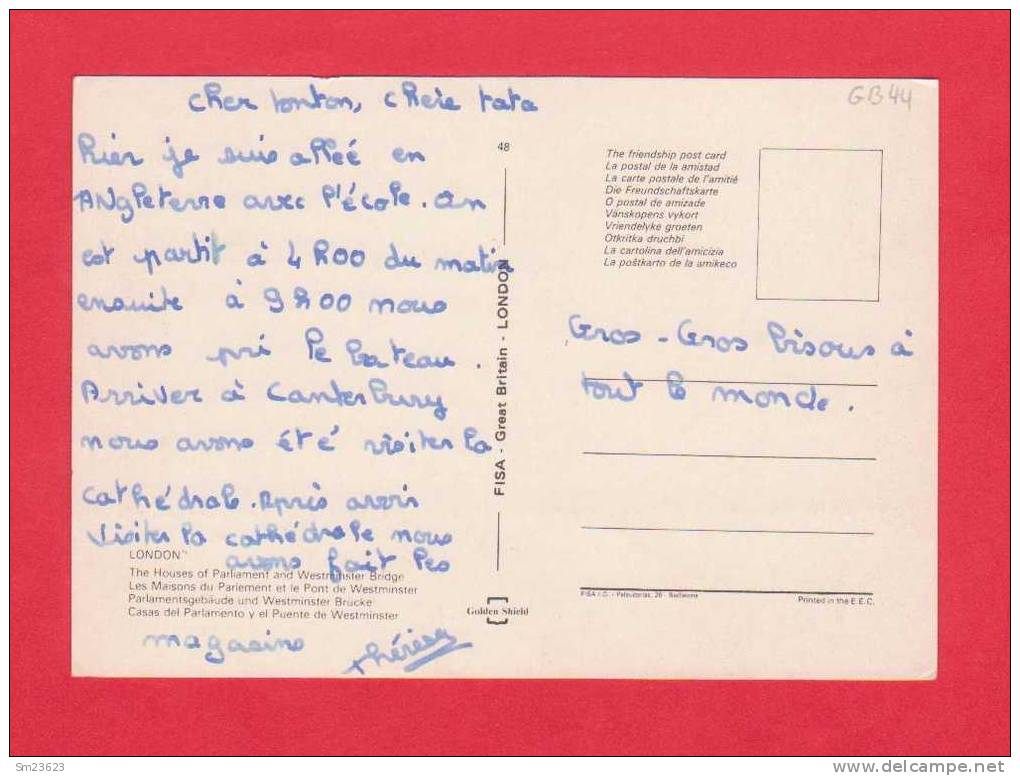 cher tonton, cheie tata
GB44
hier je suis allée en
ANgleterre avec l'école. on
est partit à 4h00 du matin
ensuite à 9h00 nous
avons pri le bateau.
Arriver à Canterbury
nous avons été visiter la
cathédrale. Après avoir
visiter la cathédrale nous
avons fait les
magasins
LONDON
The Houses of Parliament and Westminster Bridge
Les Maisons du Parlement et le Pont de Westminster
Parlamentsgebäude und Westminster Brücke
Casas del Parlamento y el Puente de Westminster
48
FISA - Great Britain - LONDON
Golden Shield
The friendship post card
La postal de la amistad
La carte postale de l'amitié
Die Freundschaftskarte
O postal de amizade
Vänskapens vykort
Vriendelyke groeten
Otkritka druchbi
La cartolina dell'amicizia
La poŝtkarto de la amikeco
Gros - Gros bisous à
tout le monde.
FISA I.G. - Palaudarias, 26 - Barcelona
Printed in the E.E.C.
Sm23623
delcampe.net